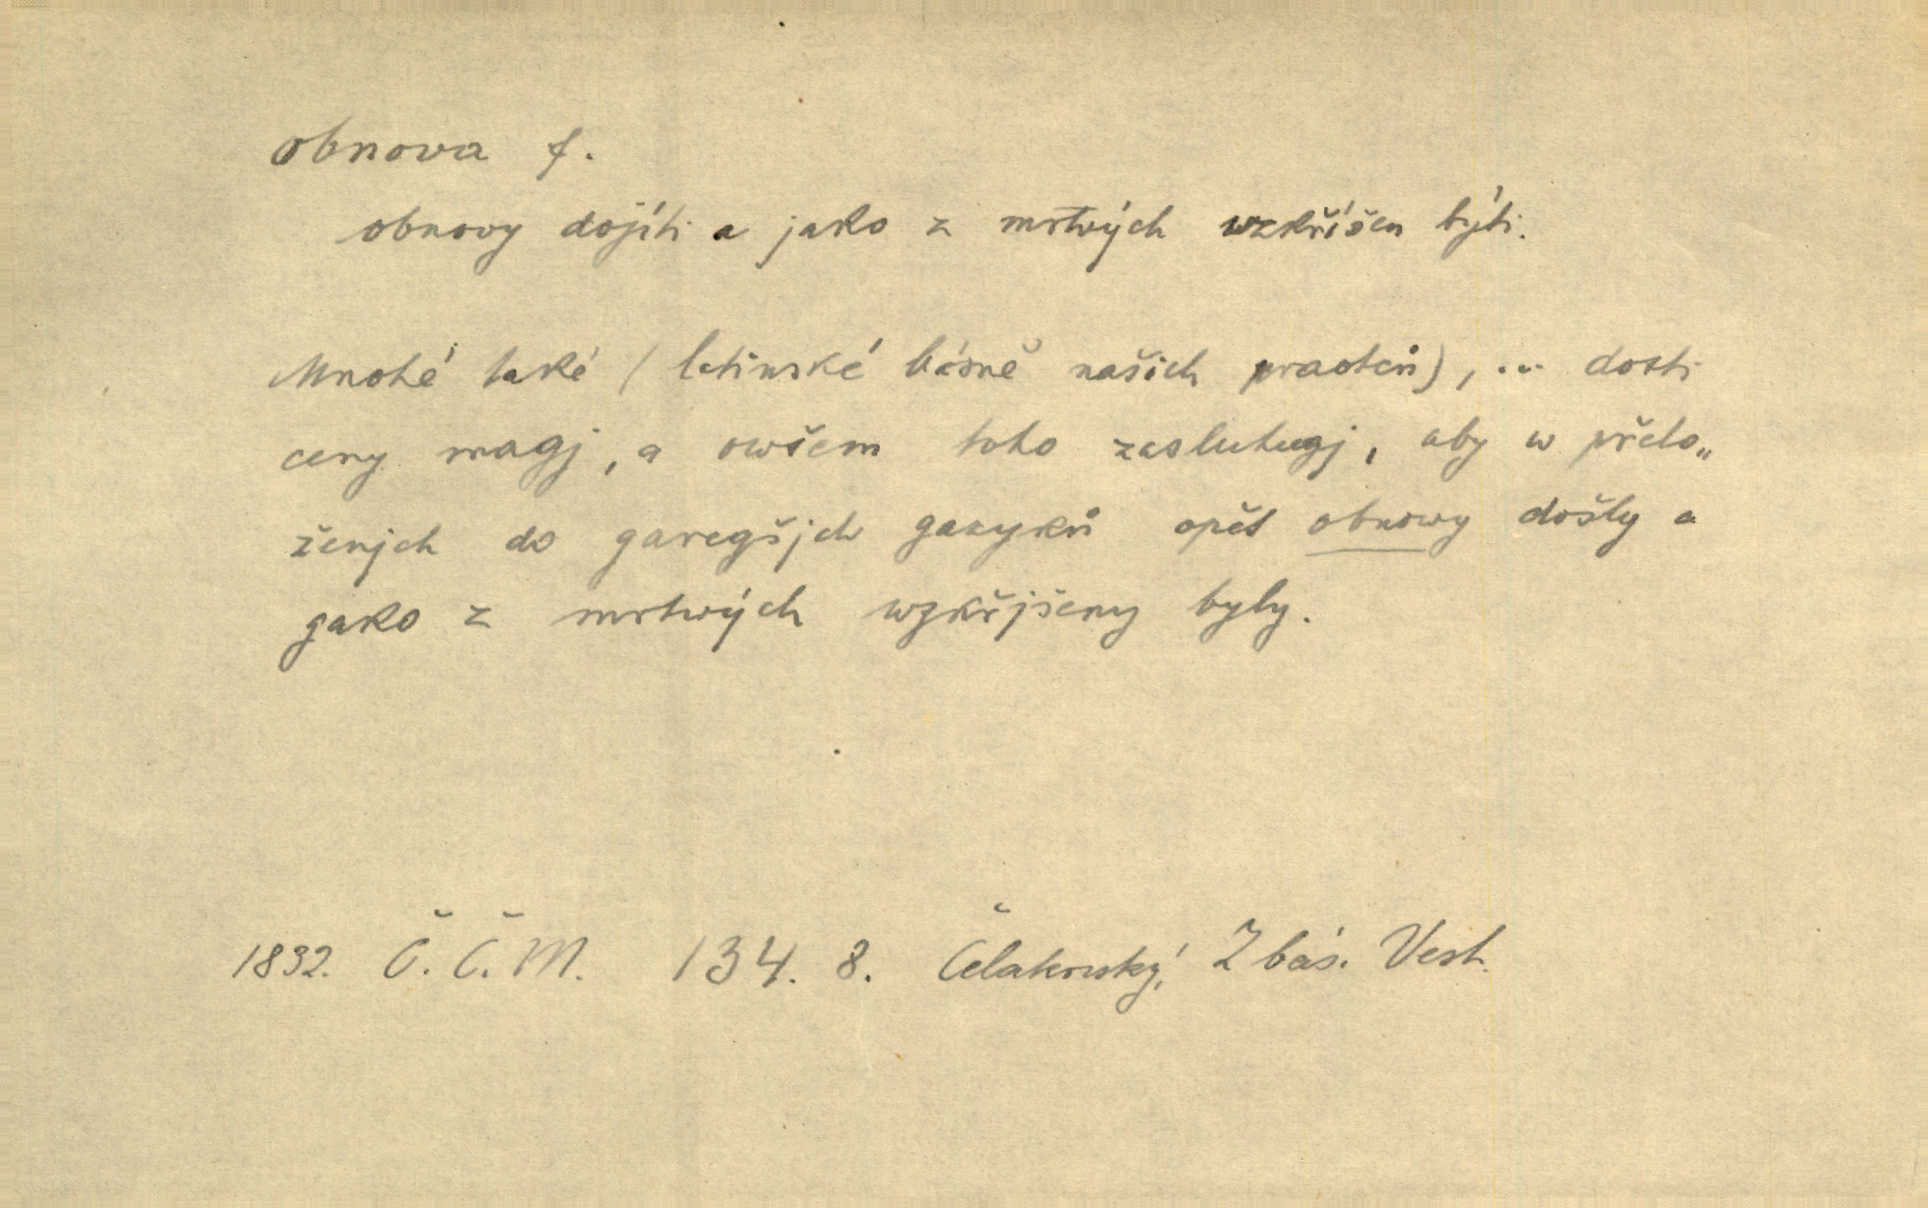 obnova f.
obnovy dojíti a jako z mrtvých wzkříšen býti.
Mnohé také (latinské básně našich praotců), ... dosti
ceny magj, a owšem toho zasluhugj, aby w přelo„
ženjch do garegšjch gazyků opět obnowy došly a
gako z mrtwých wzkřjšeny byly.
1832. Č. Č. M. 134. 8. Čelakovský, Z bás. Vest.